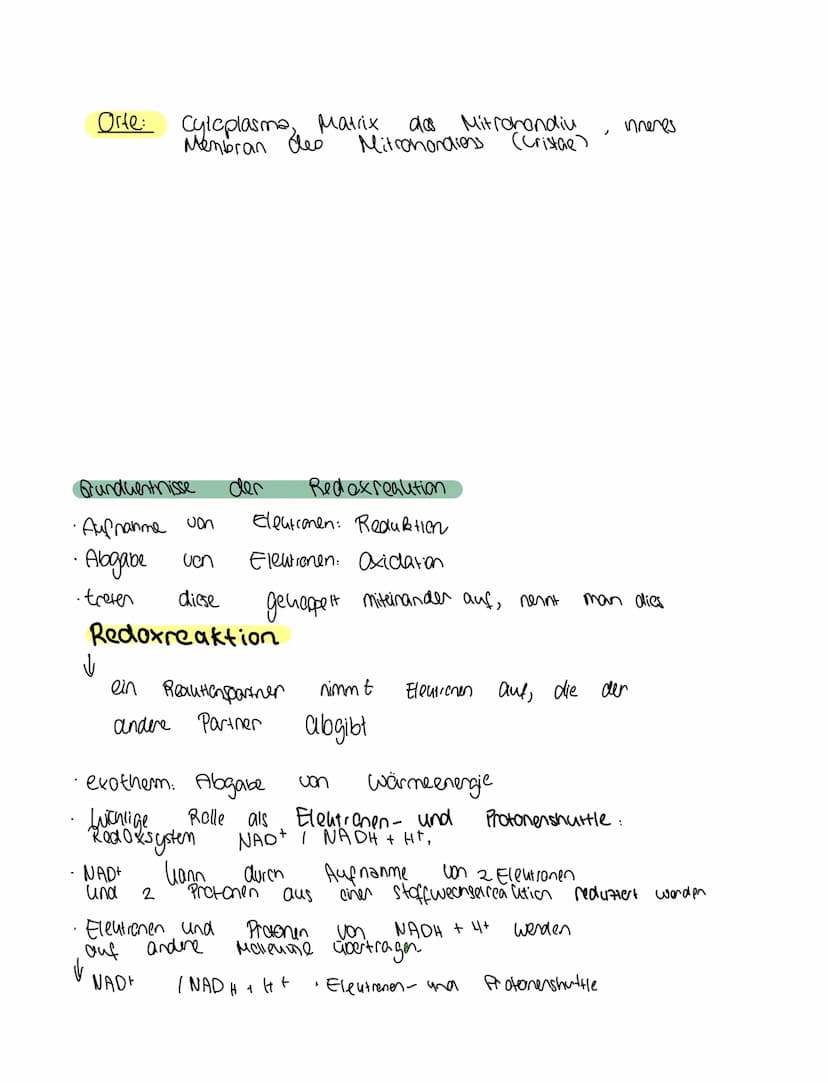 Orte: Cytoplasma, Matrix des Mitrohondiu, inneres
Membran des Mitrohondiens (Cristae)
Grundkentnisse der Redoxreaktion
· Aufnahme von Elektronen: Reduktion
· Abgabe von Elektronen: Oxidation
· treten diese gekoppelt miteinander auf, nennt man dies
Redoxreaktion
↓
ein Reaktionspartner nimmt Elektronen auf, die der
andere Partner abgibt
· exotherm: Abgabe von Wärmeenergie
· Wichtige Rolle als Elektronen- und Protonenshuttle:
Redoxsystem NAD+ / NADH + H+,
· NAD+ kann durch Aufnahme von 2 Elektronen
und 2 Protonen aus einer Stoffwechselreaktion reduziert werden
· Elektronen und Protonen von NADH + H+ werden
auf andere Moleküle übertragen
↓ NAD+ / NADH + H+ · Elektronen- und Protonenshuttle